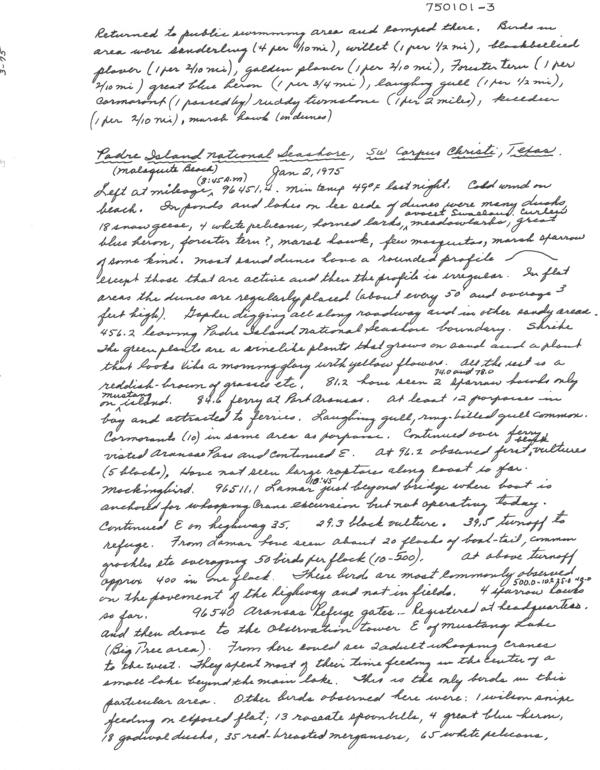 750101-3
3-75
Returned to public swimming area and camped there. Birds in
area were sanderling (4 per 4/10 mi), willet (1 per 1/2 mi), blackbellied
plover (1 per 2/10 mi), golden plover (1 per 2/10 mi), Forster tern (1 per
2/10 mi) great blue heron (1 per 3/4 mi), laughing gull (1 per 1/2 mi),
Cormorant (1 passed by) ruddy turnstone (1 per 2 miles), killdeer
(1 per 2/10 mi), marsh hawk (in dunes)
Padre Island National Seashore, SW Corpus Christi, Texas.
(Malaquite Beach) Jan 2, 1975
(8:45 A.M)
Left at mileage, 96451.2. Min temp 49°F last night. Cold wind on
beach. In ponds and lakes on lee side of dunes were many ducks,
avocet Swallows, Curlew
18 snow geese, 4 white pelicans, horned larks, meadowlarks, great
blue heron, forster tern?, marsh hawk, few mosquitos, marsh sparrow
of some kind. Most sand dunes have a rounded profile
except those that are active and then the profile is irregular. In flat
areas the dunes are regularly placed (about every 50' and average 3
feet high). Gopher digging all along roadway and in other sandy areas.
456.2 leaving Padre Island National Seashore boundary. Shrike
The green plants are a vinelike plants that grows on sand and a plant
that looks like a morning glory with yellow flowers. All the rest is a
74.0 and 78.0
reddish-brown of grasses etc. 81.2 have seen 2 sparrow hawks only
mustang
on island. 84.6 ferry at Port Aransas. At least 12 porpoises in
bay and attracted to ferries. Laughing gull, ring-billed gull common.
Cormorants (10) in same area as porpoise. Continued over ferry
visited Aransas Pass and continued E. At 96.2 observed first vultures
(5 blacks), Have not seen large raptores along coast so far.
10:45
Mockingbird. 96511.1 Lamar just beyond bridge where boat is
anchored for whooping Crane excursion but not operating today.
Continued E on highway 35. 29.3 black vulture. 39.5 turnoff to
refuge. From Lamar have seen about 20 flocks of boat-tail, common
grackles etc averaging 50 birds per flock (10-500). At above turnoff
approx 400 in one flock. These bird are most commonly observed
on the pavement of the highway and not in fields. 4 sparrow hawks
so far. 96540 Aransas Refuge gates - Registered at headquarters.
and then drove to the Observation tower E of Mustang Lake
(Big Tree area). From here could see 2 adult whooping cranes
to the west. They spent most of their time feeding in the center of a
small lake beyond the main lake. This is the only birds in this
particular area. Other birds observed here were: 1 wilson snipe
feeding on exposed flat; 13 roseate spoonbills, 4 great blue heron,
18 gadwal ducks, 35 red-breasted mergansers, 65 white pelicans,